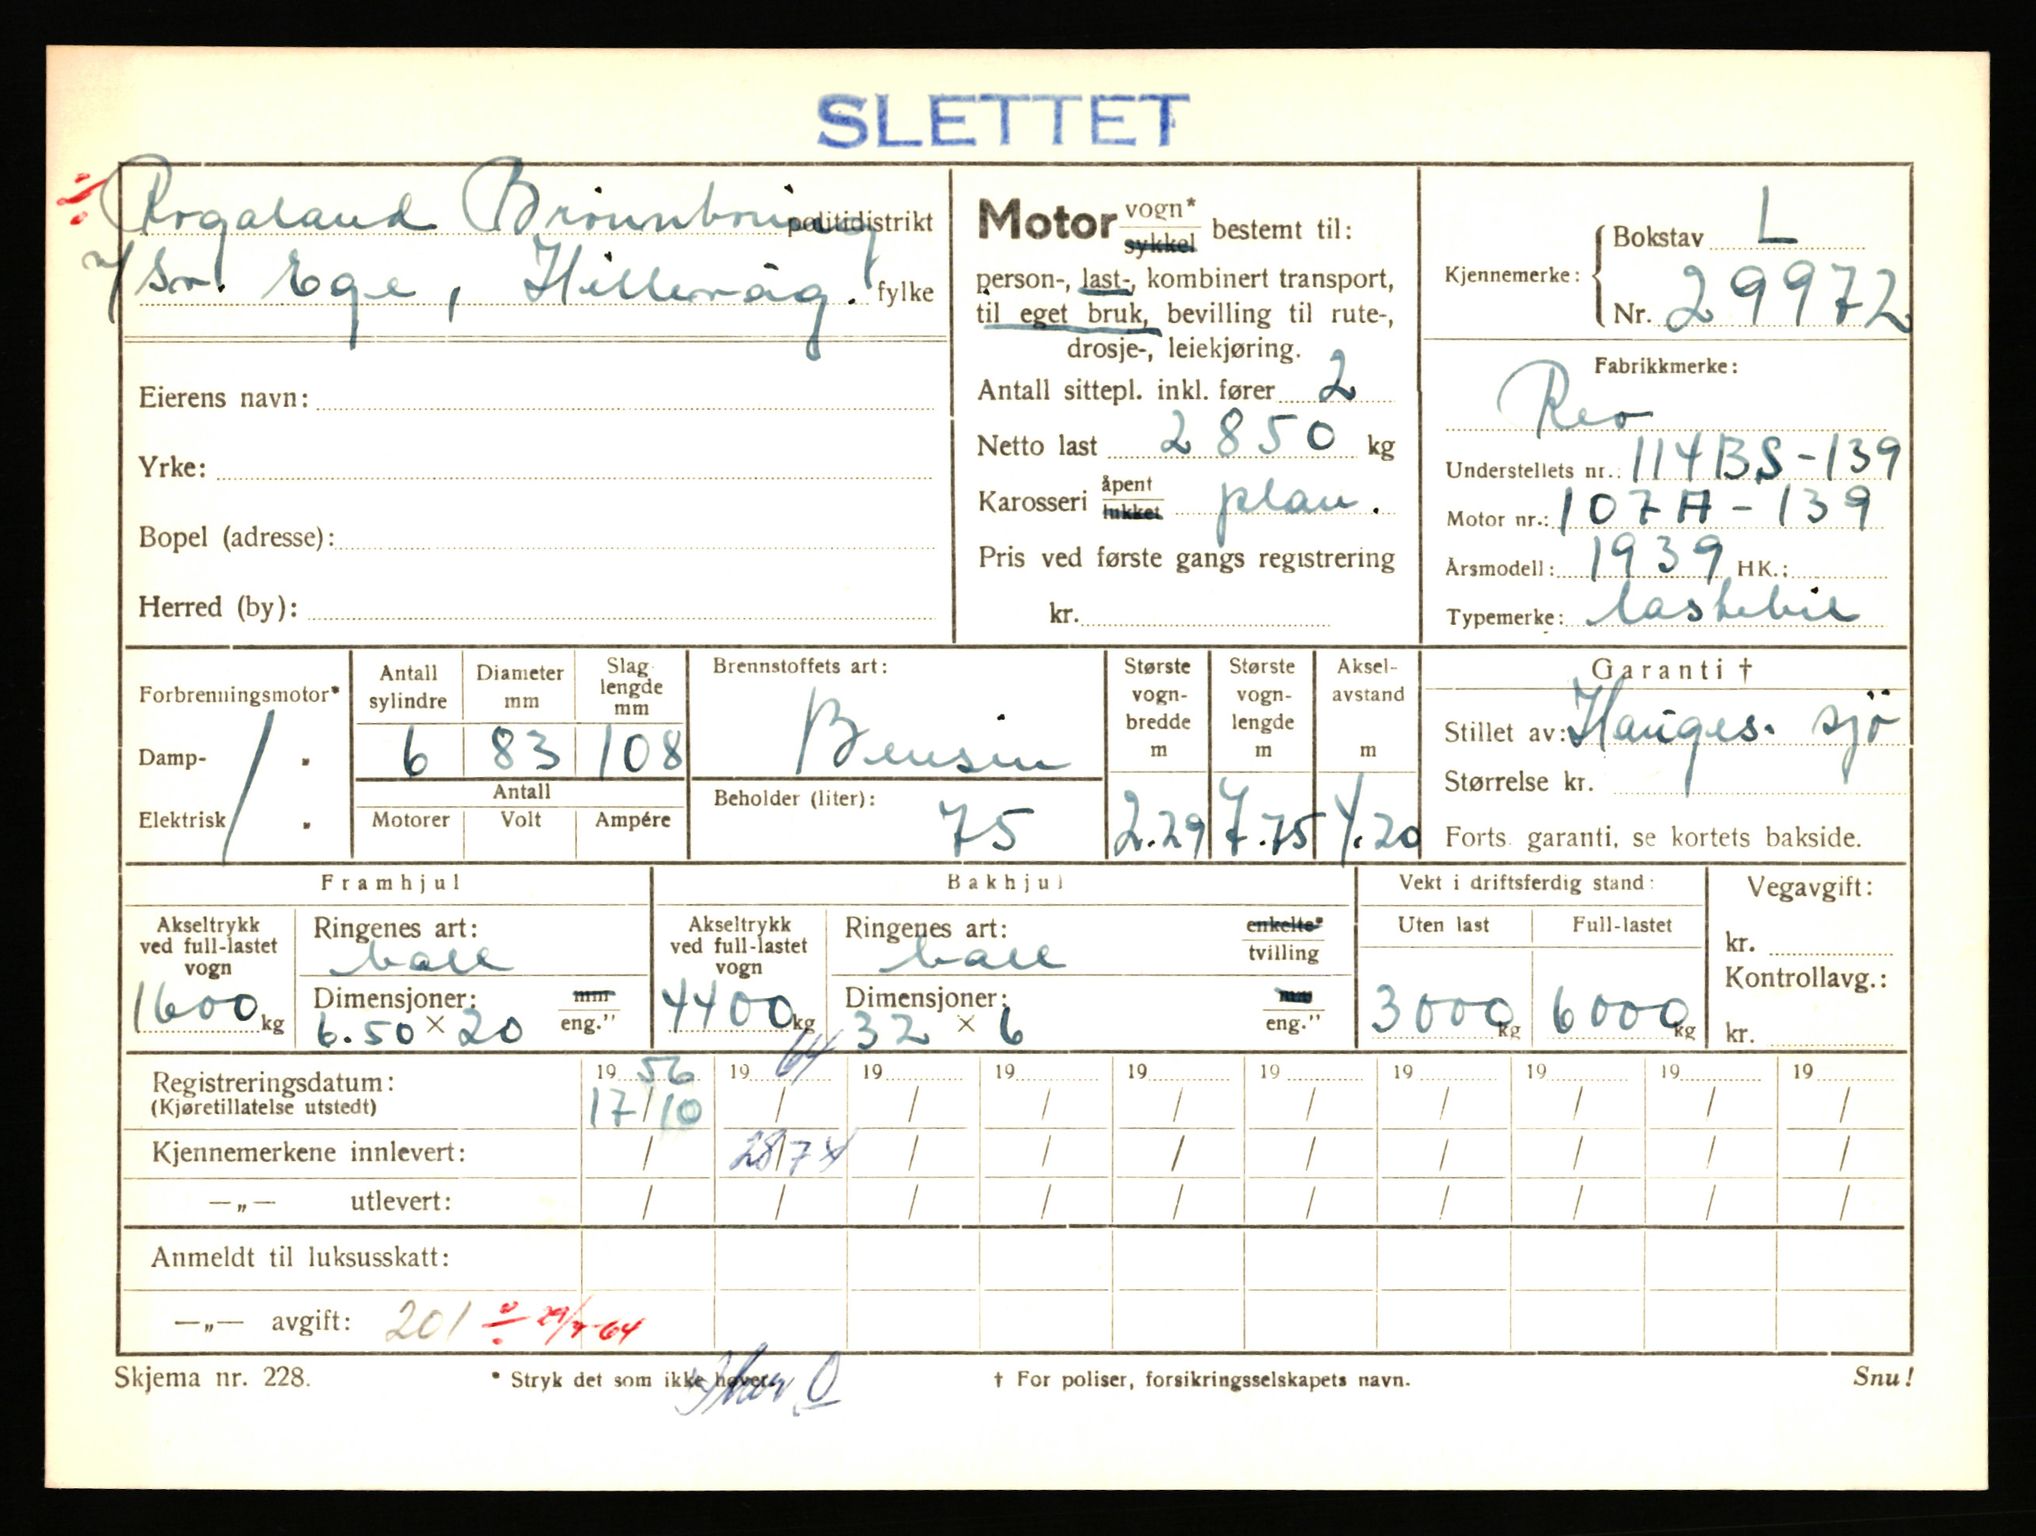 SLETTET
Rogaland Brønnboring politidistrikt
v/ Sv. Ege, Hillevåg. fylke
Eierens navn:
Yrke:
Bopel (adresse):
Herred (by):
Motor vogn* sykkel bestemt til:
person-, last-, kombinert transport,
til eget bruk, bevilling til rute-,
drosje-, leiekjøring.
Antall sittepl. inkl. fører 2
Netto last 2850 kg
Karosseri åpent lukket plan.
Pris ved første gangs registrering
kr.
Kjennemerke: Bokstav L
Nr. 29972
Fabrikkmerke:
Reo
Understellets nr.: 114BS-139
Motor nr.: 107A-139
Årsmodell: 1939 HK.:
Typemerke: lastebil
Forbrenningsmotor*
Damp- "
Elektrisk "
Antall sylindre 6
Diameter mm 83
Slaglengde mm 108
Antall
Motorer Volt Ampére
Brennstoffets art:
Bensin
Beholder (liter):
75
Største vognbredde m 2.29
Største vognlengde m 7.75
Akselavstand m 4.20
Garanti †
Stillet av: Hauges. sjö
Størrelse kr.
Forts. garanti, se kortets bakside.
Framhjul
Akseltrykk ved full-lastet vogn 1600 kg
Ringenes art: ball
Dimensjoner: mm eng."
6.50 × 20
Bakhjul
Akseltrykk ved full-lastet vogn 4400 kg
Ringenes art: enkelte* tvilling
ball
Dimensjoner: mm eng."
32 × 6
Vekt i driftsferdig stand:
Uten last Full-lastet
3000 kg 6000 kg
Vegavgift:
kr.
Kontrollavg.:
kr.
Registreringsdatum: 19 56 19 64 19 19 19 19 19 19 19 19
(Kjøretillatelse utstedt) 17/10 / / / / / / / / /
Kjennemerkene innlevert: / 28/7 / / / / / / / /
—„— utlevert: / / / / / / / / / /
Anmeldt til luksusskatt:
—„— avgift: 201 29/7-64
Skjema nr. 228.
* Stryk det som ikke høver.
† For poliser, forsikringsselskapets navn.
Snu!